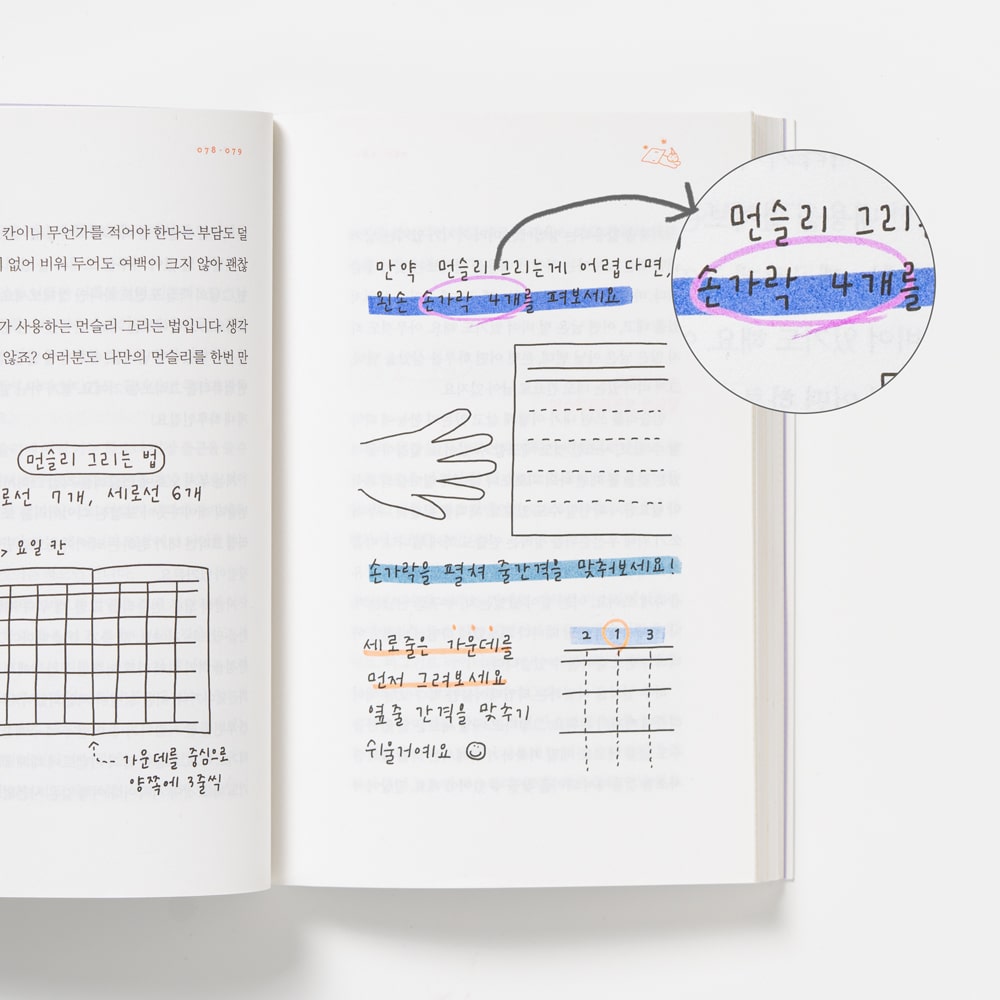 078 · 079
칸이니 무언가를 적어야 한다는 부담도 덜
없어 비워 두어도 여백이 크지 않아 괜찮
가 사용하는 먼슬리 그리는 법입니다. 생각
않죠? 여러분도 나만의 먼슬리를 한번 만
먼슬리 그리는 법
로선 7개, 세로선 6개
> 요일 칸
가운데를 중심으로
양쪽에 3줄씩
만약 먼슬리 그리는게 어렵다면,
왼손 손가락 4개를 펴보세요
먼슬리 그리
손가락 4개를
손가락을 펼쳐 줄간격을 맞춰보세요!
세로줄은 가운데를
먼저 그려보세요
옆줄 간격을 맞추기
쉬울거예요
2 1 3